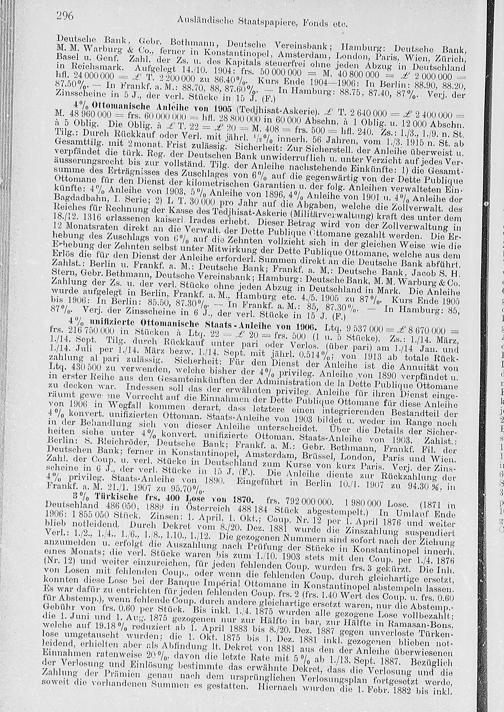 296
Ausländische Staatspapiere, Fonds etc.
Deutsche Bank, Gebr. Bethmann, Deutsche Vereinsbank; Hamburg: Deutsche Bank,
M. M. Warburg & Co., ferner in Konstantinopel, Amsterdam, London, Paris, Wien, Zürich,
Basel u. Genf. Zahl. der Zs. u. des Kapitals steuerfrei ohne jeden Abzug in Deutschland
in Reichsmark. Aufgelegt 14./10. 1904: frs. 50 000 000 = M. 40 800 000 = £ 2 000 000 =
hfl. 24 000 000 = £ T. 2 200 000 zu 86.40%. Kurs Ende 1904—1906: In Berlin: 88.90, 88.20,
87.50%. — In Frankf. a. M.: 88.70, 88, 87.60%. — In Hamburg: 88.75, 87.40, 87%. Verj. der
Zinsscheine in 5 J., der verl. Stücke in 15 J. (F.)
4% Ottomanische Anleihe von 1905 (Tedjhisat-Askerie). £ T. 2 640 000 = £ 2 400 000 =
M. 48 960 000 = frs. 60 000 000 = hfl. 28 800 000 in 60 000 Absehn. à 1 Oblig. u. 12 000 Absehn.
à 5 Oblig. Die Oblig. à £ T. 22 = £ 20 = M. 408 = frs. 500 = hfl. 240. Zs.: 1./3., 1./9. n. St.
Tilg.: Durch Rückkauf oder Verl. mit jährl. 1/2% innerh. 56 Jahren, vom 1./3. 1915 n. St. ab
Gesamttilg. mit 2monat. Frist zulässig. Sicherheit: Zur Sicherstell. der Anleihe überweist u.
verpfändet die türk. Reg. der Deutschen Bank unwiderruflich u. unter Verzicht auf jedes Ver-
äusserungsrecht bis zur vollständ. Tilg. der Anleihe nachstehende Einkünfte: 1) die Gesamt-
summe des Erträgnisses des Zuschlages von 6% auf die gegenwärtig von der Dette Publique
Ottomane für den Dienst der kilometrischen Garantien u. der folg. Anleihen verwalteten Ein-
künfte: 4% Anleihe von 1903, 5% Anleihe von 1896, 4% Anleihe von 1901 u. 4% Anleihe der
Bagdadbahn, I. Serie; 2) L T. 30 000 pro Jahr auf die Abgaben, welche die Zollverwalt. des
Reiches für Rechnung der Kasse des Tedjhisat-Askerie (Militärverwaltung) kraft des unter dem
18./12. 1316 erlassenen kaiserl Irades erhebt. Dieser Betrag wird von der Zollverwaltung in
12 Monatsraten direkt an die Verwalt. der Dette Publique Ottomane gezahlt werden. Die Er-
hebung des Zuschlags von 6% auf die Zehnten vollzieht sich in der gleichen Weise wie die
Erhebung der Zehnten selbst unter Mitwirkung der Dette Publique Ottomane, welche aus dem
Erlös die für den Dienst der Anleihe erforderl. Summen direkt an die Deutsche Bank abführt.
Zahlst.: Berlin u. Frankf. a. M.: Deutsche Bank; Frankf. a. M.: Deutsche Bank, Jacob S. H.
Stern, Gebr. Bethmann, Deutsche Vereinsbank; Hamburg: Deutsche Bank, M. M. Warburg & Co.
Zahlung der Zs. u. der verl. Stücke ohne jeden Abzug in Deutschland in Mark. Die Anleihe
wurde aufgelegt in Berlin, Frankf. a. M., Hamburg etc. 4./5. 1905 zu 87%. Kurs Ende 1905
bis 1906: In Berlin: 85.50, 87.30%. — In Frankf. a. M.: 85, 87.30%. — In Hamburg: 85,
87%. Verj. der Zinsscheine in 6 J., der verl. Stücke in 15 J. (F.)
4% unifizierte Ottomanische Staats-Anleihe von 1906. Ltq. 9 537 000 = £ 8 670 000 =
frs. 216 750 000 in Stücken à Ltq. 22 = £ 20 = frs. 500 (1 u. 5 Stücke). Zs.: 1./14. März,
1./14. Sept. Tilg. durch Rückkauf unter pari oder Verlos. (über pari) am 1./14 Jan. und
1./14. Juli per 1./14. März bezw. 1./14. Sept. mit jährl. 0.514%; von 1913 ab totale Rück-
zahlung al pari zulässig. Sicherheit: Für den Dienst der Anleihe ist die Annuität von
Ltq. 430 500 zu verwenden, welche bisher der 4% privileg. Anleihe von 1890 verpfändet u.
in erster Reihe aus den Gesamteinkünften der Administration de la Dette Publique Ottomane
zu decken war. Indessen soll das der erwähnten privileg. Anleihe für ihren Dienst einge-
räumt gewe-ne Vorrecht auf die Einnahmen der Dette Publique Ottomane für diese Anleihe
von 1906 in Wegfall kommen derart, dass letztere einen integrierenden Bestandteil der
4% konvert. unifizierten Ottoman. Staats-Anleihe von 1903 bildet u. weder im Range noch
in der Behandlung sich von dieser Anleihe unterscheidet. Über die Details der Sicher-
heiten siehe unter 4% konvert. unifizierte Ottoman. Staats-Anleihe von 1903. Zahlst.:
Berlin: S. Bleichröder, Deutsche Bank; Frankf. a. M.: Gebr. Bethmann, Frankf. Fil. der
Deutschen Bank; ferner in Konstantinopel, Amsterdam, Brüssel, London, Paris und Wien.
Zahl. der Coup. u. verl. Stücke in Deutschland zum Kurse von kurz Paris. Verj. der Zins-
scheine in 6 J., der verl. Stücke in 15 J. (F.). Die Anleihe diente zur Rückzahlung der
4% privileg. Staats-Anleihe von 1890. Eingeführt in Berlin 10./1. 1907 zu 94.30%, in
Frankf. a. M. 21./1. 1907 zu 95.70%.
3% Türkische frs. 400 Lose von 1870. frs. 792 000 000. 1 980 000 Lose. (1871 in
Deutschland 486 050, 1889 in Österreich 488 184 Stück abgestempelt.) In Umlauf Ende
1906: 1 855 050 Stück. Zinsen: 1. April, 1. Okt.; Coup. Nr. 12 per 1. April 1876 und weiter
blieb notleidend. Durch Dekret vom 8./20. Dez. 1881 wurde die Zinszahlung suspendiert
Verl.: 1./2., 1./4., 1./6., 1./8., 1./10., 1./12. Die gezogenen Nummern sind sofort nach der Ziehung
anzumelden u. erfolgt die Auszahlung nach Prüfung der Stücke in Konstantinopel innerh.
eines Monats; die verl. Stücke waren bis zum 1./10. 1903 stets mit den Coup. per 1./4. 1876
(Nr. 12) und weiter einzureichen, für jeden fehlenden Coup. wurden frs. 3 gekürzt. Die Inh.
von Losen mit fehlenden Coup., oder wenn die fehlenden Coup. durch gleichartige ersetzt,
konnten diese Lose bei der Banque Impérial Ottomane in Konstantinopel abstempeln lassen.
Es war dafür zu entrichten für jeden fehlenden Coup. frs. 2 (frs. 1.40 Wert des Coup. u. frs. 0.60
für Abstemp.), wenn fehlende Coup. durch andere gleichartige ersetzt waren, nur die Abstemp.-
Gebühr von frs. 0.60 per Stück. Bis inkl. 1./4. 1875 wurden alle gezogene Lose vollbezahlt;
die 1. Juni und 1. Aug. 1875 gezogenen nur zur Hälfte in bar, zur Hälfte in Ramasan-Bons,
welche auf 19.18% reduziert ab 1. April 1883 bis 8./20. Dez. 1887 gegen unverloste Türken-
lose umgetauscht wurden; die 1. Okt. 1875 bis 1. Dez. 1881 inkl. gezogenen blieben not-
leidend, erhielten aber als Abfindung lt. Dekret von 1881 aus den der Anleihe überwiesenen
Einnahmen ratenweise 20%, davon die letzte Rate mit 5% ab 1./13. Sept. 1887. Bezüglich
der Verlosung und Einlösung bestimmte das erwähnte Dekret, dass die Verlosung und die
Zahlung der Prämien genau nach dem ursprünglichen Verlosungsplan fortgesetzt werde,
soweit die vorhandenen Summen es gestatten. Hiernach wurden die 1. Febr. 1882 bis inkl.